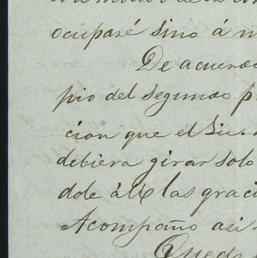 ocuparé sino á
De acuerdo
pio del segundo p
cion que el Sr.
debiera girar solo
dole á U las graci
Acompaño asi
Queda